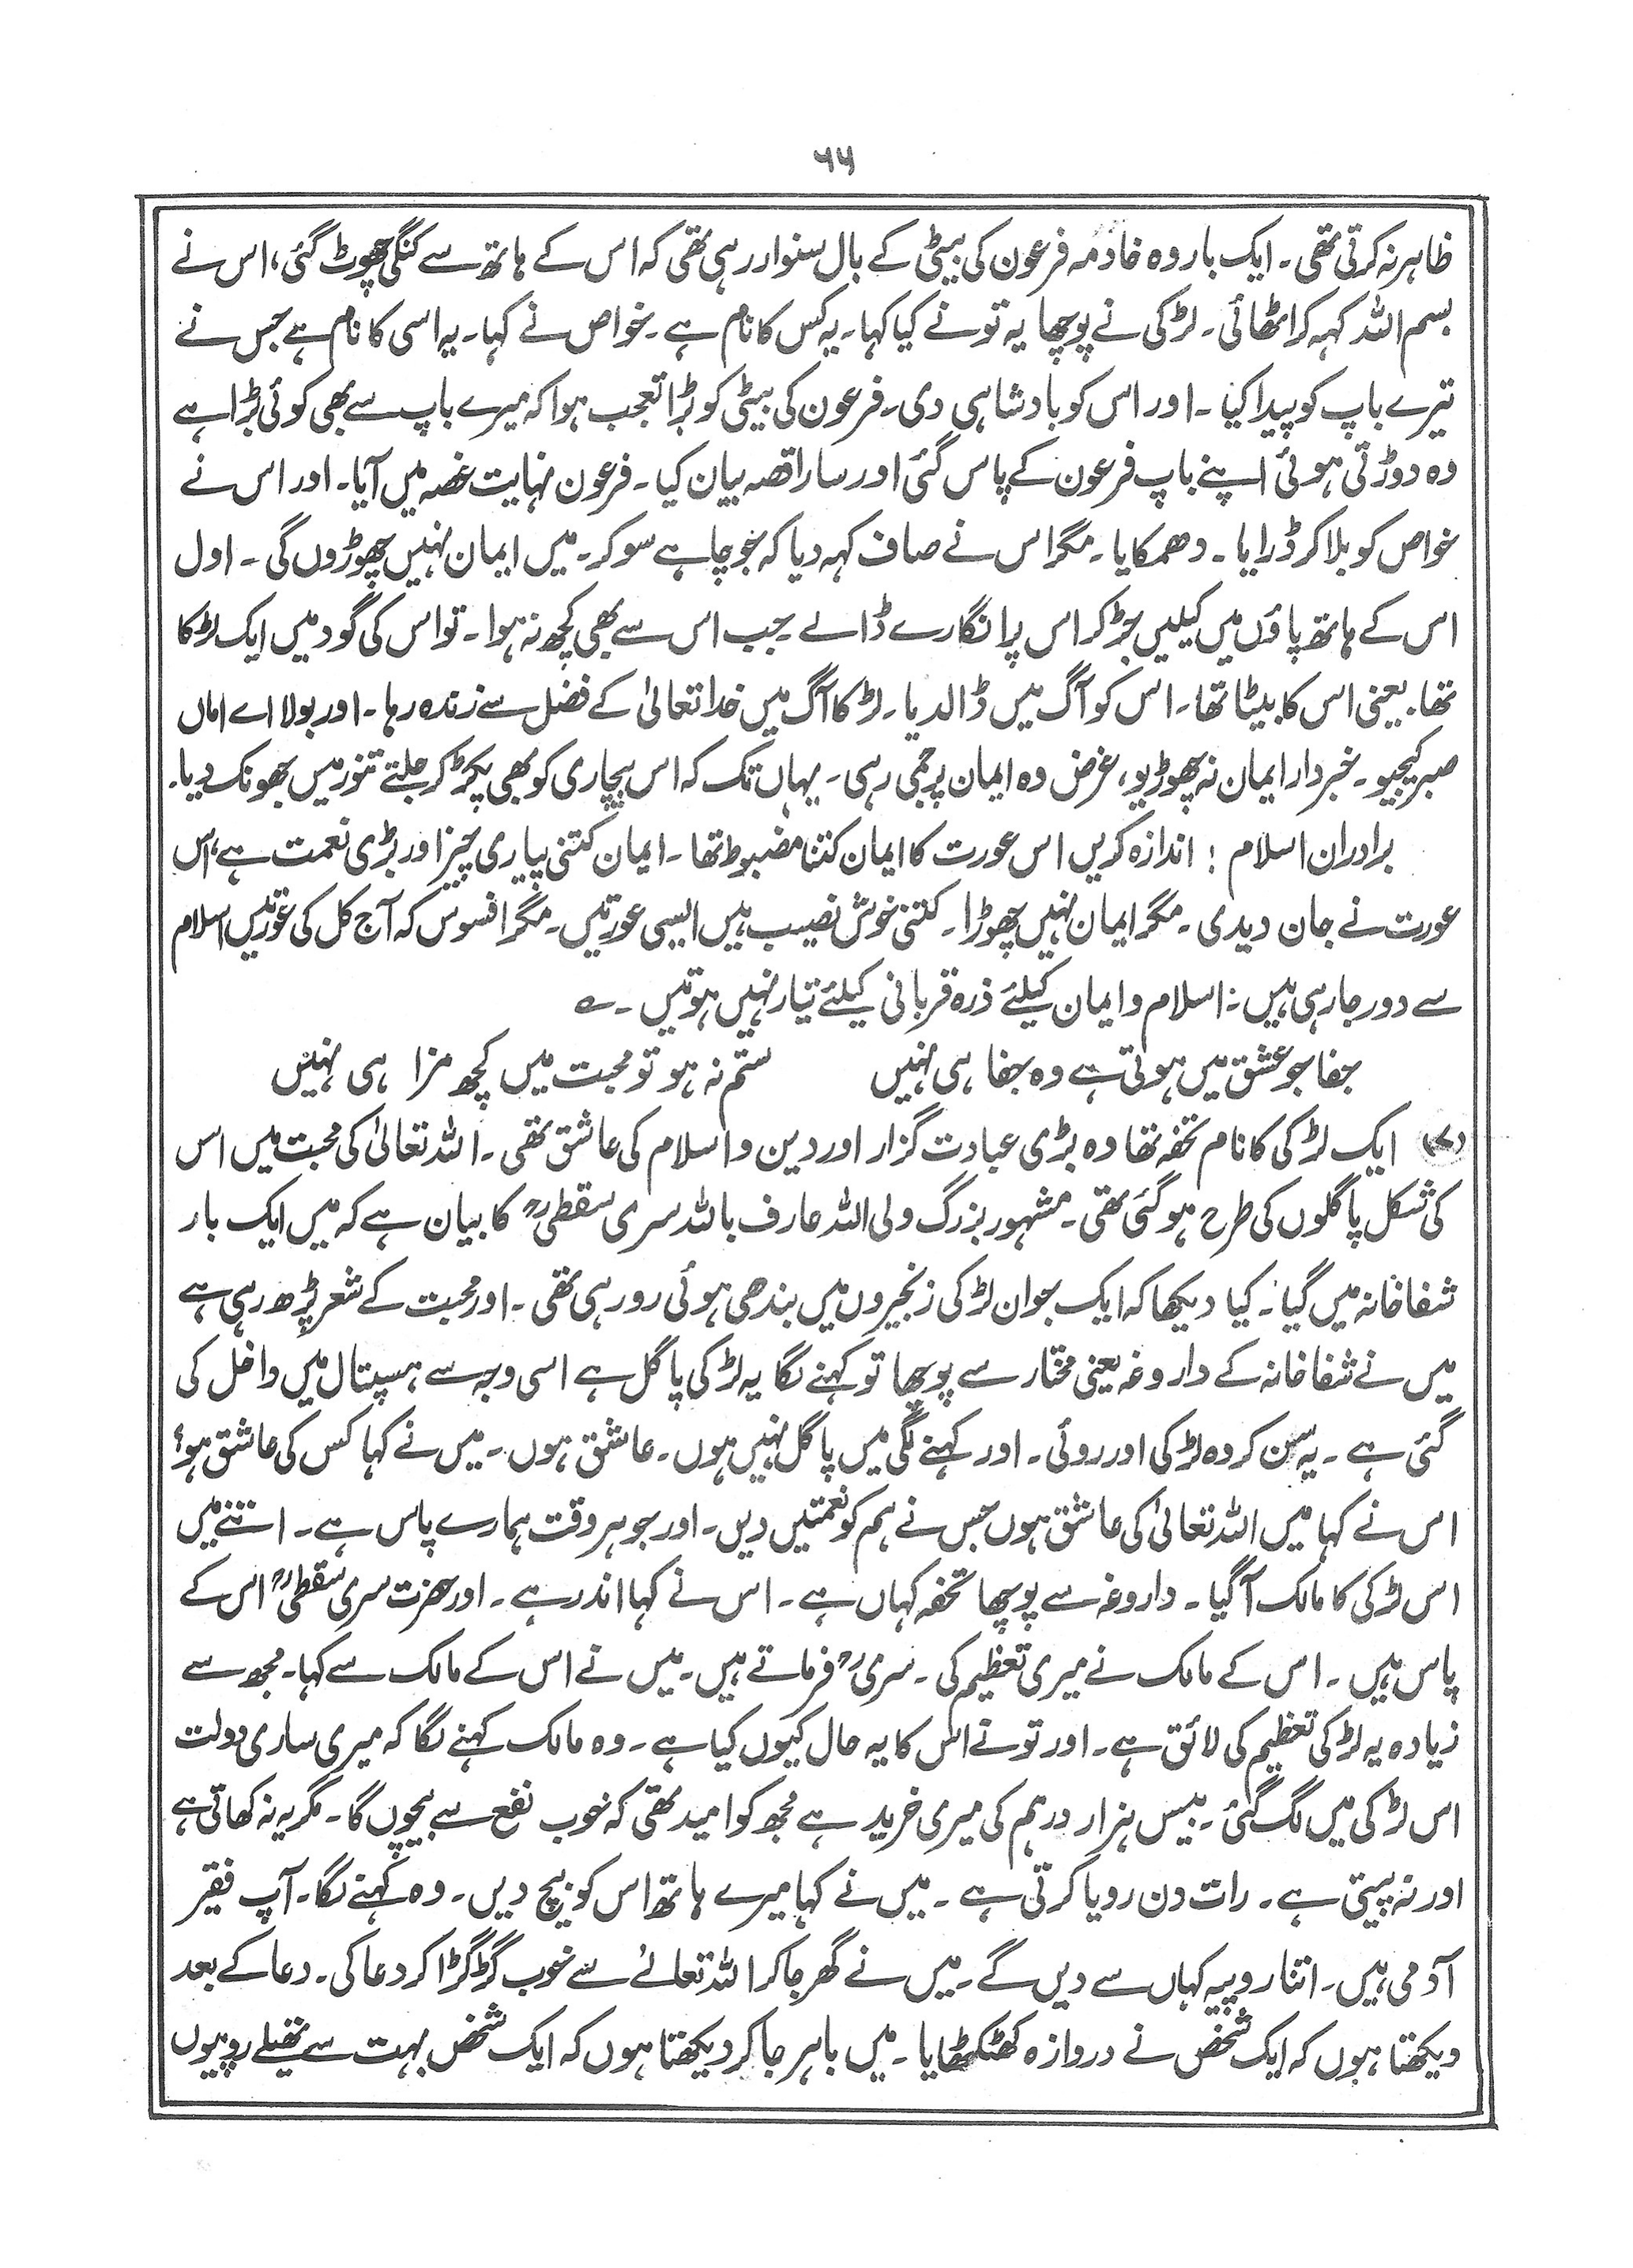 ۶۵
ظاہر نہ کرتی تھی۔ ایک بار وہ خادمہ فرعون کی بیٹی کے بال سنوار رہی تھی کہ اس کے ہاتھ سے کنگی چھوٹ گئی، اس نے
بسم اللہ کہہ کر اٹھائی۔ لڑکی نے پوچھا یہ تو نے کیا کہا۔ یہ کس کا نام ہے۔ خواص نے کہا۔ یہ اسی کا نام ہے جس نے
تیرے باپ کو پیدا کیا۔ اور اس کو بادشاہی دی۔ فرعون کی بیٹی کو بڑا تعجب ہوا کہ میرے باپ سے بھی کوئی بڑا ہے
وہ دوڑتی ہوئی اپنے باپ فرعون کے پاس گئی اور سارا قصہ بیان کیا۔ فرعون نہایت غصہ میں آیا۔ اور اس نے
خواص کو بلا کر ڈرایا۔ دھمکایا۔ مگر اس نے صاف کہہ دیا کہ جو چاہے سو کر۔ میں ایمان نہیں چھوڑوں گی۔ اول
اس کے ہاتھ پاؤں میں کیلیں جڑ کر اس پر انگارے ڈالے جب اس سے بھی کچھ نہ ہوا۔ تو اس کی گود میں ایک لڑکا
تھا۔ یعنی اس کا بیٹا تھا۔ اس کو آگ میں ڈالدیا۔ لڑکا آگ میں خدا تعالیٰ کے فضل سے زندہ رہا۔ اور بولا اے اماں
صبر کیجیو۔ خبردار ایمان نہ چھوڑیو، غرض وہ ایمان پر جمی رہی۔ یہاں تک کہ اس بیچاری کو بھی پکڑ کر جلتے تنور میں جھونک دیا۔
برادران اسلام ! اندازہ کریں اس عورت کا ایمان کتنا مضبوط تھا۔ ایمان کتنی پیاری چیز اور بڑی نعمت ہے، اس
عورت نے جان دیدی۔ مگر ایمان نہیں چھوڑا۔ کتنی خوش نصیب ہیں ایسی عورتیں۔ مگر افسوس کہ آج کل کی عورتیں اسلام
سے دور جا رہی ہیں۔ اسلام و ایمان کیلئے ذرہ قربانی کیلئے تیار نہیں ہوتیں۔ ؎
جفا جو عشق میں ہوتی ہے وہ جفا ہی نہیں ستم نہ ہو تو محبت میں کچھ مزا ہی نہیں
(۷) ایک لڑکی کا نام تحفہ تھا وہ بڑی عبادت گزار اور دین و اسلام کی عاشق تھی۔ اللہ تعالیٰ کی محبت میں اس
کی شکل پاگلوں کی طرح ہو گئی تھی۔ مشہور بزرگ ولی اللہ عارف باللہ سری سقطیؒ کا بیان ہے کہ میں ایک بار
شفاخانہ میں گیا۔ کیا دیکھا کہ ایک جوان لڑکی زنجیروں میں بندھی ہوئی رو رہی تھی۔ اور محبت کے شعر پڑھ رہی ہے
میں نے شفاخانہ کے داروغہ یعنی مختار سے پوچھا تو کہنے لگا یہ لڑکی پاگل ہے اسی وجہ سے ہسپتال میں داخل کی
گئی ہے۔ یہ سن کر وہ لڑکی اور روئی۔ اور کہنے لگی میں پاگل نہیں ہوں۔ عاشق ہوں۔ میں نے کہا کس کی عاشق ہو؟
اس نے کہا میں اللہ تعالیٰ کی عاشق ہوں جس نے ہم کو نعمتیں دیں۔ اور جو ہر وقت ہمارے پاس ہے۔ اتنے میں
اس لڑکی کا مالک آ گیا۔ داروغہ سے پوچھا تحفہ کہاں ہے۔ اس نے کہا اندر ہے۔ اور حضرت سری سقطیؒ اس کے
پاس ہیں۔ اس کے مالک نے میری تعظیم کی۔ سریؒ فرماتے ہیں۔ میں نے اس کے مالک سے کہا۔ مجھ سے
زیادہ یہ لڑکی تعظیم کی لائق ہے۔ اور تو نے اس کا یہ حال کیوں کیا ہے۔ وہ مالک کہنے لگا کہ میری ساری دولت
اس لڑکی میں لگ گئی۔ بیس ہزار درہم کی میری خرید ہے مجھ کو امید تھی کہ خوب نفع سے بیچوں گا۔ مگر یہ نہ کھاتی ہے
اور نہ پیتی ہے۔ رات دن رویا کرتی ہے۔ میں نے کہا میرے ہاتھ اس کو بیچ دیں۔ وہ کہنے لگا۔ آپ فقیر
آدمی ہیں۔ اتنا روپیہ کہاں سے دیں گے۔ میں نے گھر جا کر اللہ تعالےٰ سے خوب گڑگڑا کر دعا کی۔ دعا کے بعد
دیکھتا ہوں کہ ایک شخص نے دروازہ کھٹکھٹایا۔ میں باہر جا کر دیکھتا ہوں کہ ایک شخص بہت سے تھیلے روپیوں